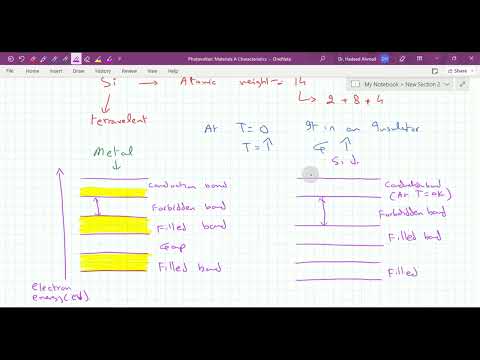 Photovoltaic Materials A Characteristics - OneNote
Dr. Hadeed Ahmad
My Notebook > New Section 2
Si → Atomic weight = 14
2 + 8 + 4
tetravalent
At T=0 It is an insulator
T=↑ σ ↑
Metal
Si
Conduction band
Forbidden band
Filled band
Gap
Filled band
electron
energy(eV)
Conduction band
(At T=0K)
Forbidden band
Filled band
Filled